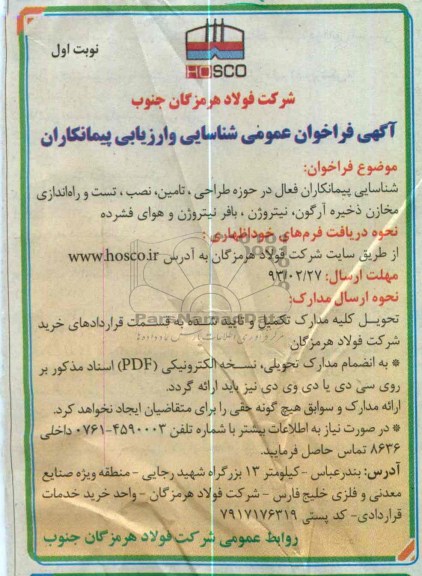 نوبت اول
HOSCO
شرکت فولاد هرمزگان جنوب
آگهی فراخوان عمومی شناسایی وارزیابی پیمانکاران
موضوع فراخوان:
شناسایی پیمانکاران فعال در حوزه طراحی ، تامین، نصب ، تست و راه‌اندازی
مخازن ذخیره آرگون، نیتروژن ، بافر نیتروژن و هوای فشرده
نحوه دریافت فرم‌های خوداظهاری :
از طریق سایت شرکت فولاد هرمزگان به آدرس www.hosco.ir
مهلت ارسال: ۹۳/۰۲/۲۷
نحوه ارسال مدارک:
تحویـل کلیه مدارک تکمیل و تایید شده به قسمت قراردادهای خرید
شرکت فولاد هرمزگان
* به انضمام مدارک تحویلی، نسـخه الکترونیکی (PDF) اسناد مذکور بر
روی سی دی یا دی وی دی نیز باید ارائه گردد.
ارائه مدارک و سوابق هیچ گونه حقی را برای متقاضیان ایجاد نخواهد کرد.
* در صورت نیاز به اطلاعات بیشتر با شماره تلفن ۴۵۹۰۰۰۳-۰۷۶۱ داخلی
۸۶۳۶ تماس حاصل فرمایید.
آدرس: بندرعباس - کیلومتر ۱۳ بزرگراه شهید رجایی - منطقه ویژه صنایع
معدنی و فلزی خلیج فارس - شرکت فولاد هرمزگان - واحد خرید خدمات
قراردادی- کد پستی ۷۹۱۷۱۷۶۳۱۹
روابط عمومی شرکت فولاد هرمزگان جنوب